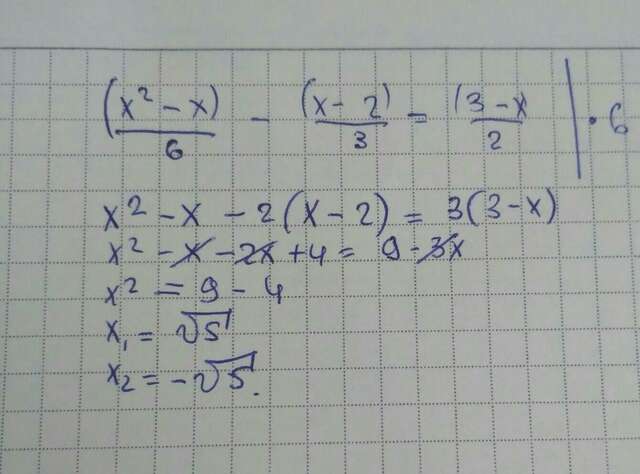 (x² - x)/6 - (x - 2)/3 = (3 - x)/2 | · 6
x² - x - 2(x - 2) = 3(3 - x)
x² - x - 2x + 4 = 9 - 3x
x² = 9 - 4
x₁ = √5
x₂ = -√5.